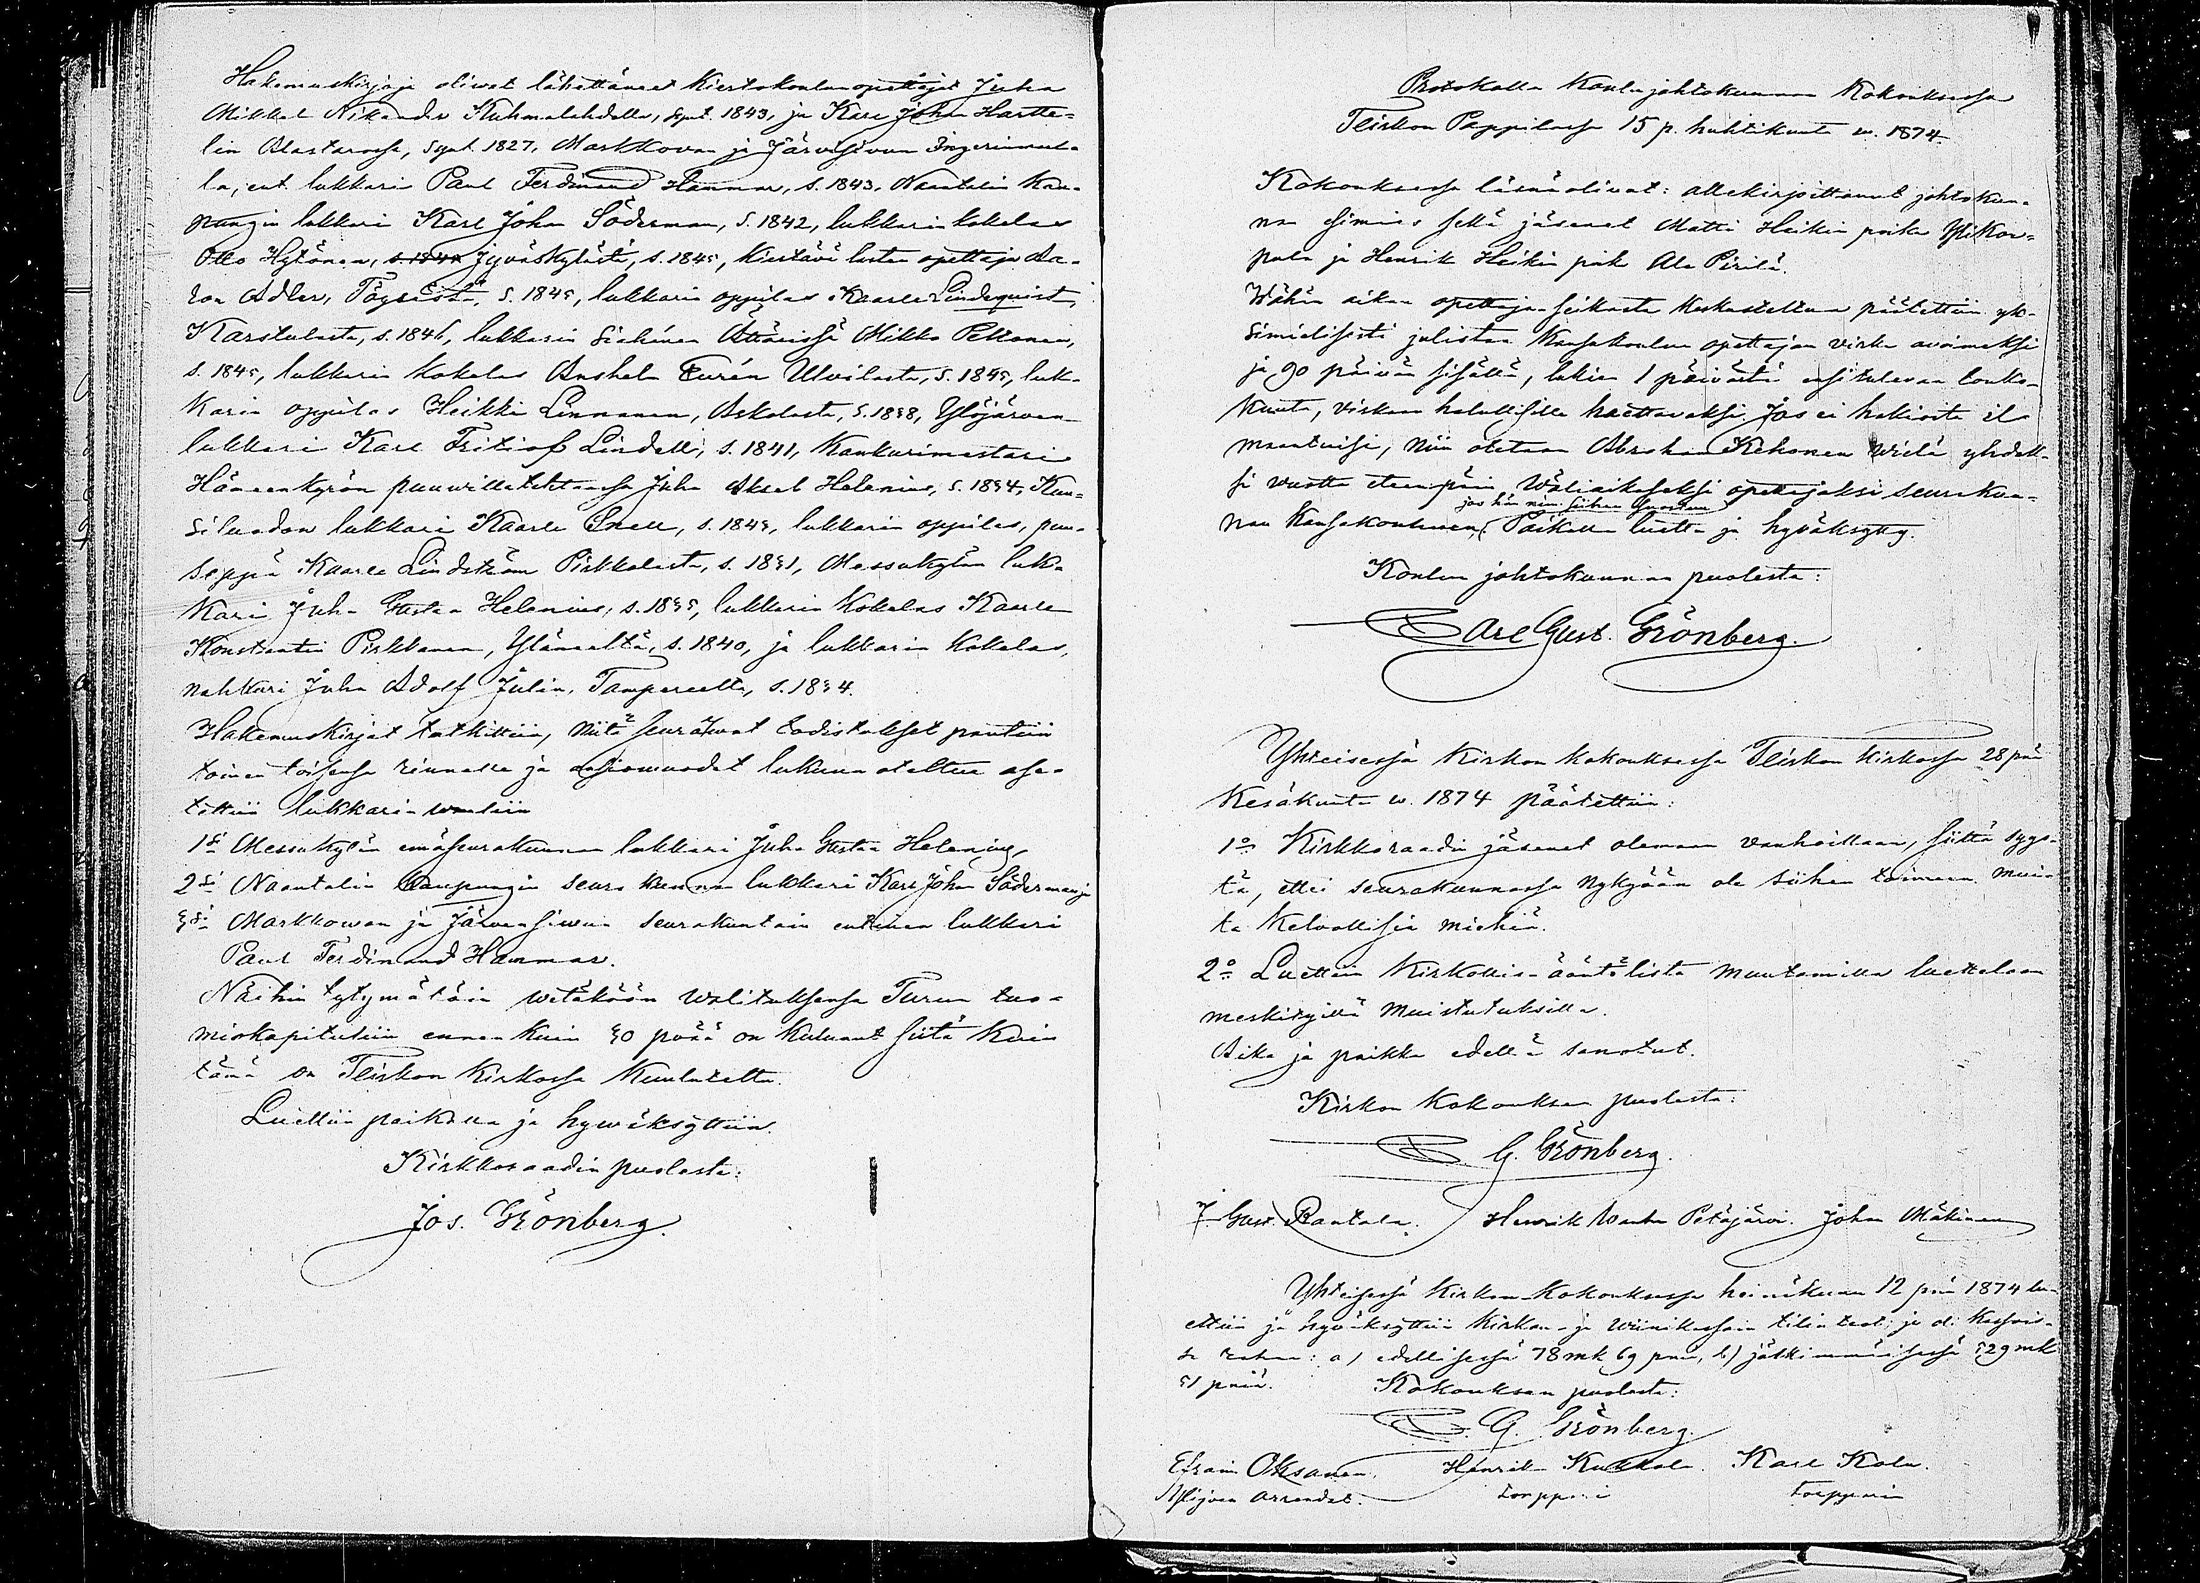 Hakemuskirjoja oliwat lähettäneet kiertokoulunopettajat Juha
Mikkel Nikander Kuhmalahdella, synt. 1843, ja Karl Johan Hartte-
lin Alastarossa, synt. 1827, Markkovan ja Järvisivun Ingerinmaal-
la, ent. lukkari Paul Ferdinand Hammar, s. 1843, Naantalin kau-
pungin lukkari Karl Johan Söderman, s. 1842, lukkarin kokelas
Otto Hytönen, Jyväskylästä, s. 1845, kiertävä lasten opettaja Aa-
ron Adler, s. 1845, lukkarin oppilas Kaarle Lindequist,
Karstulasta, s. 1846, lukkarin sijainen Ätsärissä Mikko Peltonen,
s. 1845, lukkarin kokelas Anshelm Turén Ulvilasta, s. 1845, luk-
karin oppilas Heikki Linnanen, Askolasta, s. 1838, Ylöjärven
lukkari Karl Fritiof Lindell, s. 1841, kankurimestari
Hämeenkyrön puuwillatehtaassa Juha Aksel Helenius, s. 1834,
lukkari Kaarle Snell, s. 1845, lukkarin oppilas, puu-
seppä Kaarle Lindström Pirkkalasta, s. 1831, Messukylän luk-
kari Juha Gustaa Helenius, s. 1835, lukkarin kokelas Kaarle
Konstantin Pirkkanen, Yläneeltä, s. 1840, ja lukkarin kokelas,
nahkuri Juha Adolf Julin, Tampereelta, s. 1834.
Hakemuskirjat tutkittiin, niitä seuraavat todistukset pantiin
toinen toisensa rinnalle ja ansiovuodet lukuun otettua ase-
tettiin lukkari-vaaliin
1:si Messukylän emäseurakunnan lukkari Juha Gustaa Helenius,
2:si Naantalin kaupungin seurakunnan lukkari Karl Johan Söderman ja
3:si Markkowan ja Järvensiwun seurakuntain entinen lukkari
Paul Ferdinand Hammar.
Näihin tytymätöin wetäköön walituksensa Turun tuo-
miokapituliin ennenkuin 30 pvää on kulunut siitä kuin
tämä on Teiskon kirkossa kuulutettu.
Luettiin paikalla ja hywäksyttiin.
Kirkkoraadin puolesta:
Jos. Grönberg.
Protokolla Koulujohtokunnan kokouksessa
Teiskon Pappilassa 15 p. huhtikuuta w. 1874.
Kokouksessa läsnä olivat: allekirjoittanut johtokun-
nan esimies sekä jäsenet Matti Heikin poika
ja Henrik Heikin poik Ala Pirilä.
Wähän aikaa opettaja-seikasta keskusteltua päätettiin yk-
simielisesti julistaa kansakoulun opettajan virka avoimeksi
ja 90 päivän sisällä, lukien 1 päivästä ensitulevaa touko-
kuuta, virkaan halullisilla haettavaksi. Jos ei hakioita il-
maantuisi, niin otetaan Abraham Kehonen vielä yhdek-
si vuotta eteenpäin wäliaikaseksi opettajaksi seurakun-
jos hän niin siihen suostuu
nan kansakouluun. Paikalla luettu ja hyväksytty.
Koulun johtokunnan puolesta:
Carl Gust. Grönberg.
Yhteisessä kirkon kokouksessa Teiskon kirkossa 28 pnä
Kesäkuuta w. 1874 päätettiin:
1:o Kirkkoraadin jäsenet olemaan vanhoillaan, siittä syys-
tä, ettei seurakunnassa nykyään ole siihen toimeen mui-
ta kelvollisia miehiä.
2:o Luettiin kirkollis-ääntölista muutamilla luetteloon
merkityillä muistutuksilla.
Aika ja paikka edellä sanotut.
Kirkon kokouksen puolesta:
C. G. Grönberg.
J. Gust. Rantala. Henrik Wanha Petäjärvi. Johan Mäkinen
Yhteisessä kirkon-kokouksessa heinäkuun 12 pnä 1874 lu-
ettiin ja hyväksyttiin kirkon- ja wiinikassain tilinteot; ja oli kassois-
sa rahaa: a) edellisessä 78 mk 69 pniä, b) jälkimmäisessä 529 mk
51 pniä. Kokouksen puolesta:
C. G. Grönberg
Efraim Oksanen. Henrik Kukkola. Karl Kola.
arrendat. torppari torppari